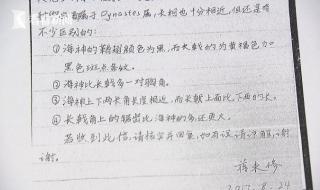 属于 Dynastes 属,长相也十分相近,但还是有
不少区别的:
①海神的鞘翅颜色为黑,而长戟的为黄褐色加
黑色斑点条纹。
②海神比长戟多一对胸角。
③海神上下两长角长度相近,而长戟上面比下面的长。
④长戟角上的锯齿比海神的多,还更大。
若收到此信,请核实并回复,如有误,请谅解,谢
谢。
蒋来修
2017.8.24